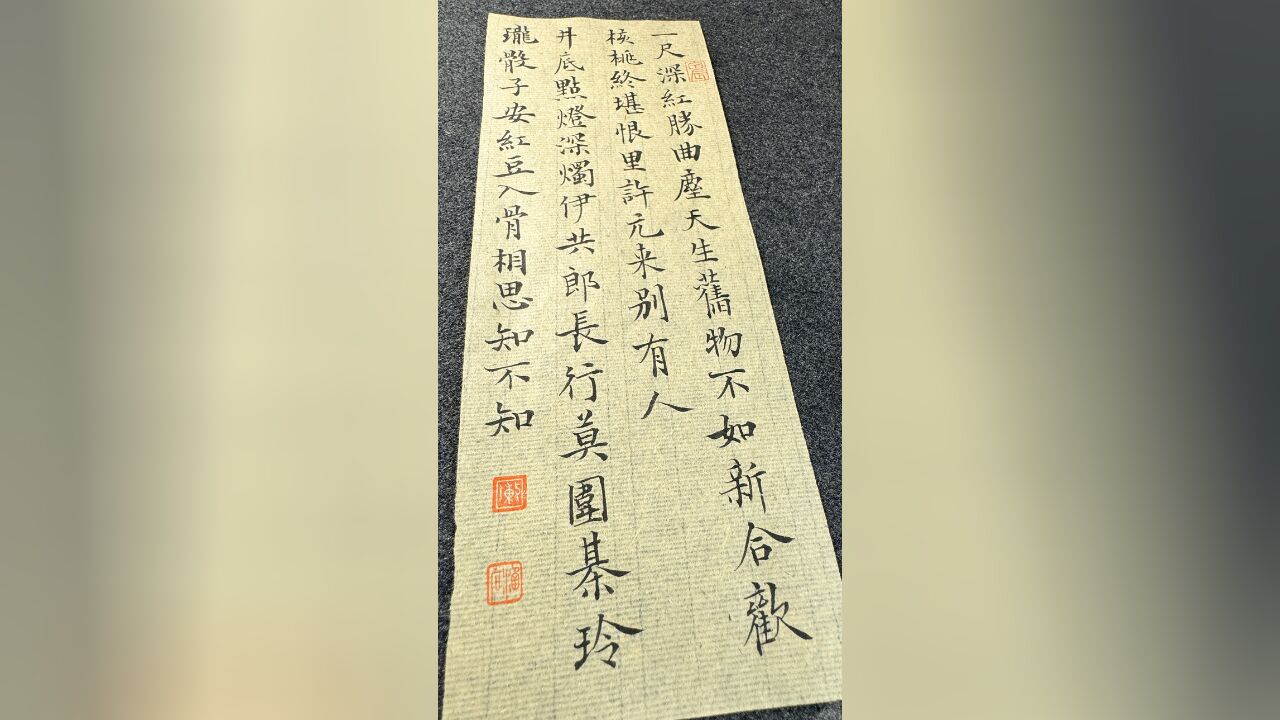 一尺深紅勝曲塵天生舊物不如新合歡
核桃終堪恨里許元来别有人
井底點燈深燭伊共郎長行莫圍棊玲
瓏骰子安紅豆入骨相思知不知